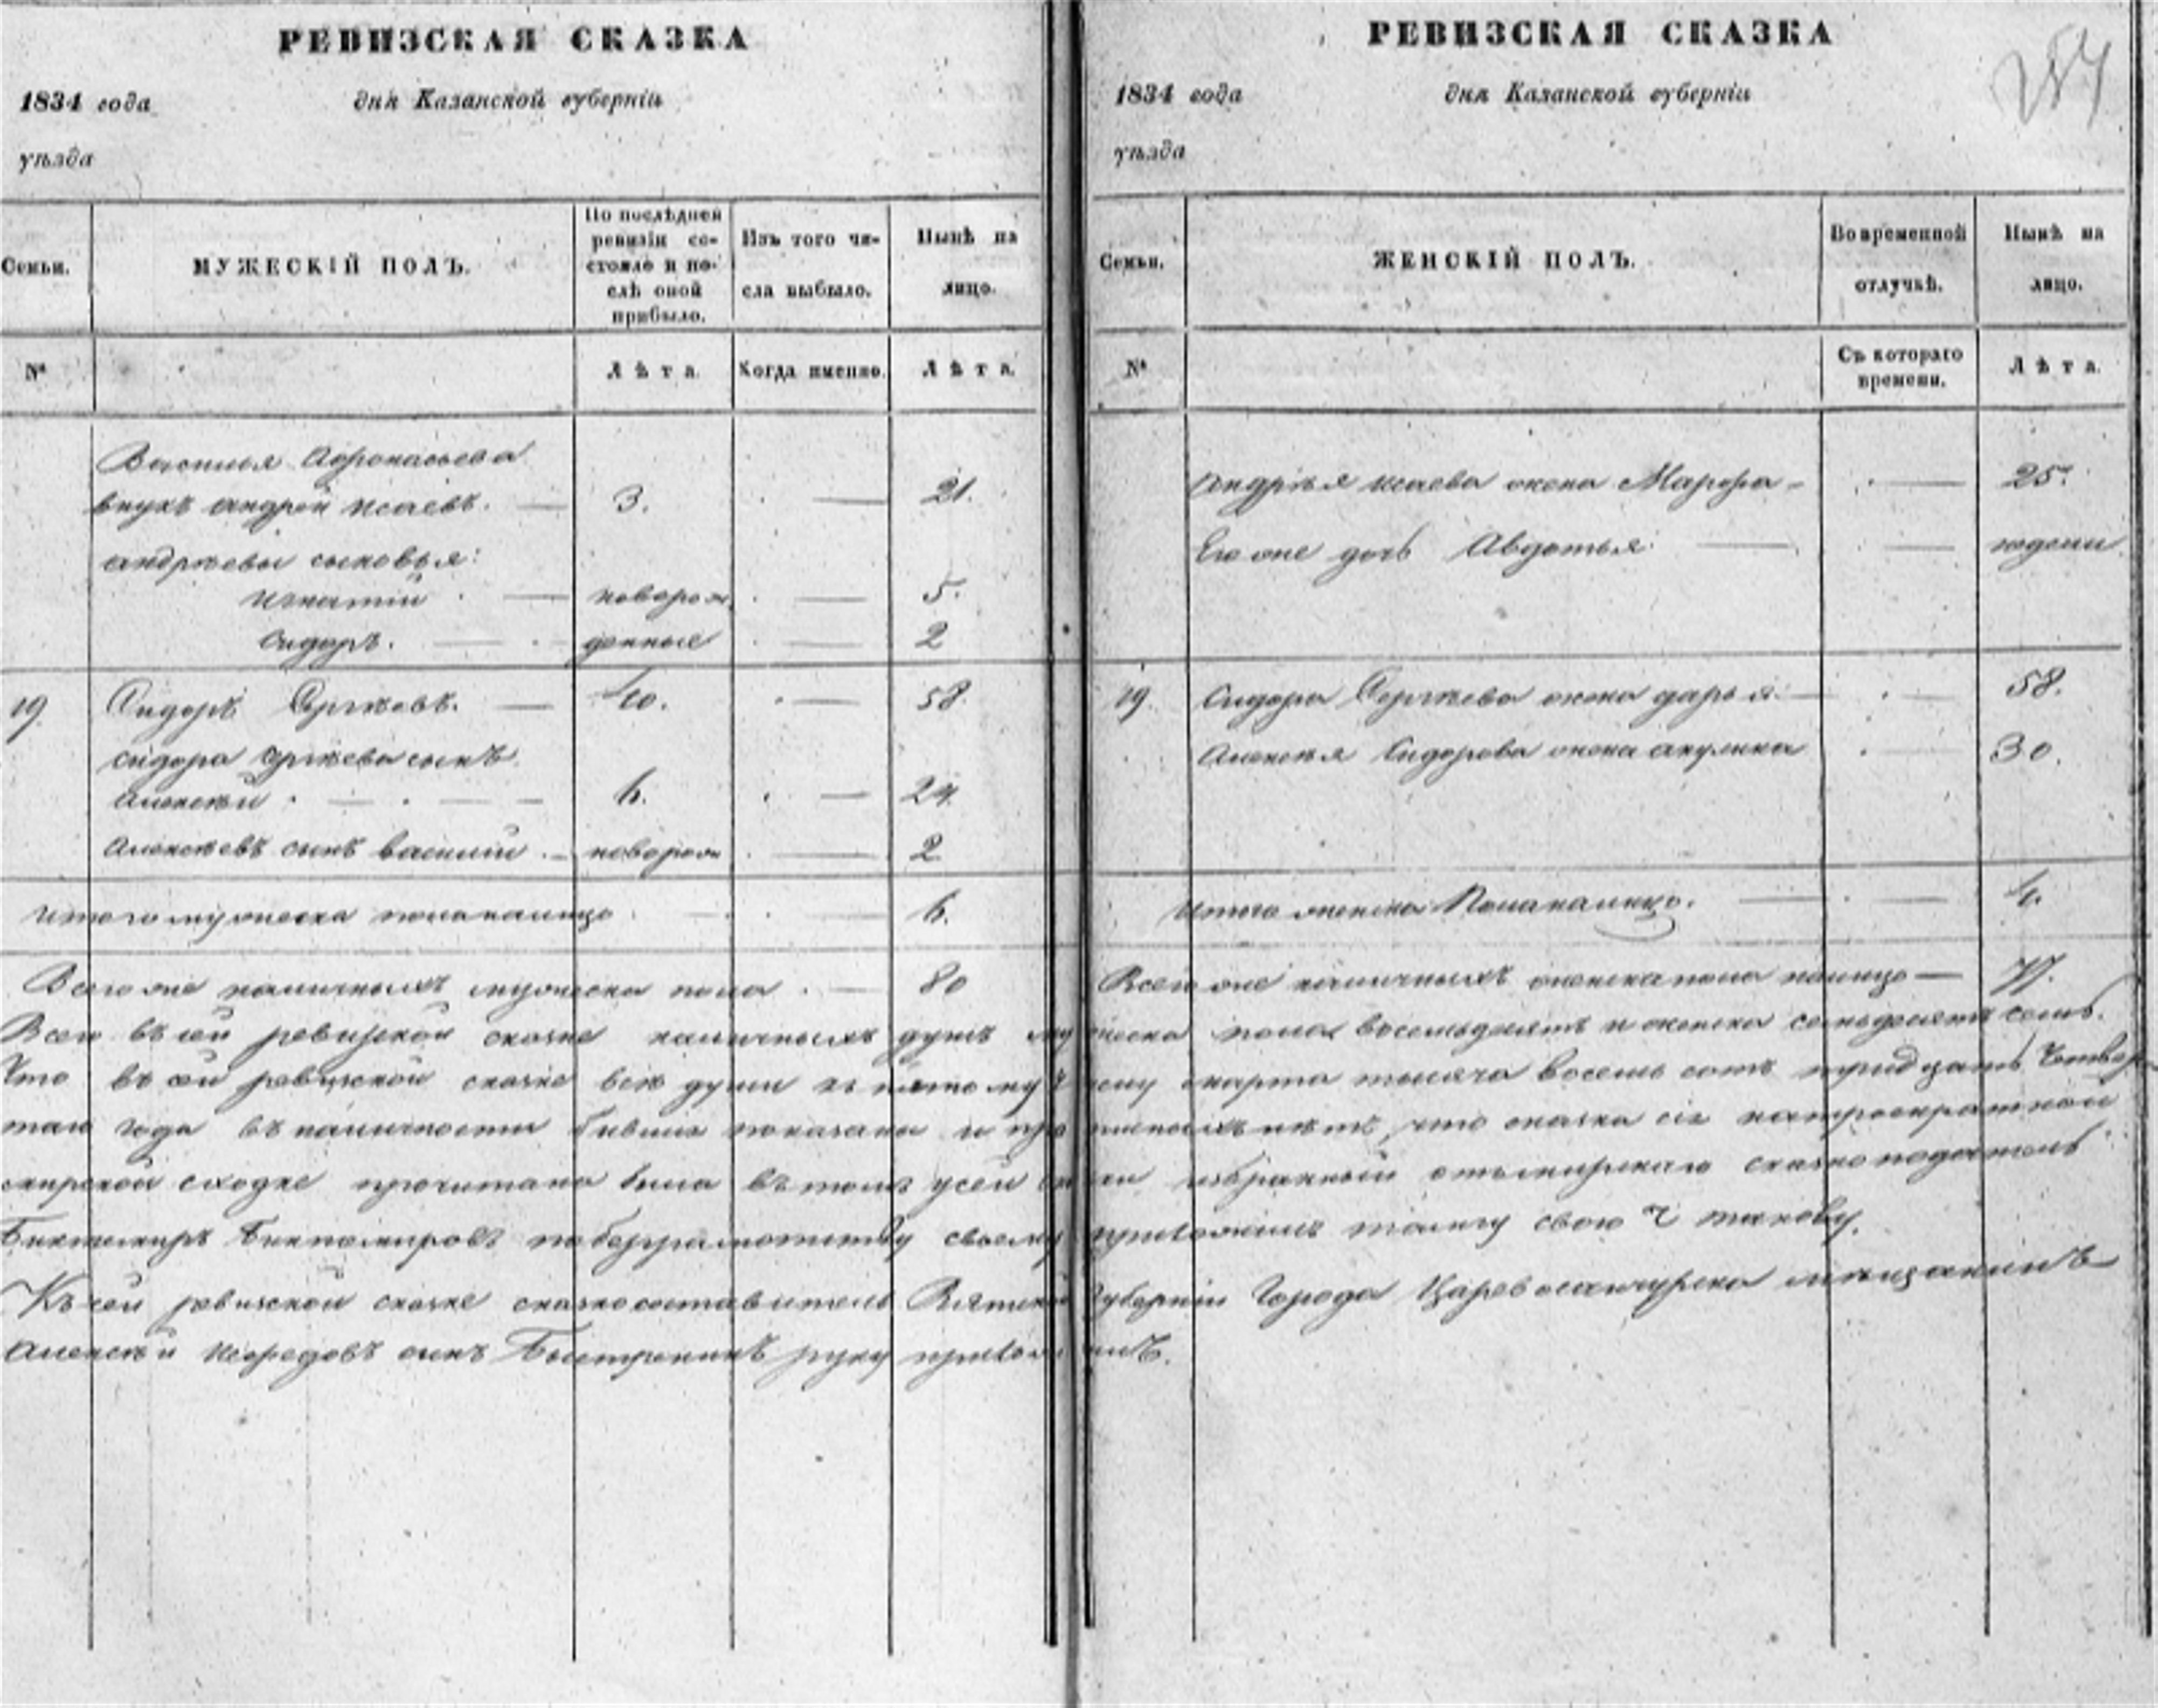 РЕВИЗСКАЯ СКАЗКА
1834 года дня Казанской губерніи
уѣзда
Семьи. МУЖЕСКІЙ ПОЛЪ. По послѣдней ревизіи состояло и послѣ оной прибыло. Изъ того числа выбыло. Нынѣ на лицо.
№ Лѣта. Когда именно. Лѣта.
Василья Афонасьева
внукъ андрей исаевъ. 3. 21.
андрѣевы сыновья:
игнатій новорож 5.
сидоръ. денные 2
19 Сидоръ Сергѣевъ. 40. 58.
сидора сергѣева сынъ
алексѣй 6. 24.
алексѣевъ сынъ василій новорож 2
итого мужеска пола налицо 6.
Всего же наличныхъ мужеска пола 80
РЕВИЗСКАЯ СКАЗКА
1834 года дня Казанской губерніи
уѣзда
Семьи. ЖЕНСКІЙ ПОЛЪ. Во временной отлучкѣ. Нынѣ на лицо.
№ Съ котораго времени. Лѣта.
андрѣя исаева жена Марфа 25.
Его же дочь Авдотья
19. Сидора Сергѣева жена дарья 58.
Алексѣя Сидорова жена акулина 30.
итого женска Пола налицо. 4.
Всего же наличныхъ женска пола налицо 77.
Всего въ сей ревизской сказке наличныхъ душъ мужеска пола восемьдесятъ и женска семьдесятъ семь.
Что въ сей ревизской сказке все души къ марта тысяча восемь сотъ тридцать Четвер
таго года въ наличности бывшие показаны и нѣтъ, что сказка сія на
мирской сходке прочитана была въ томъ избранный отъ мирскаго
Биктемиръ Биктемировъ по безграмотству своему приложилъ тамгу свою такову.
Къ сей ревизской сказке сказкосоставитель Вятской Губерніи Города Царевосанчурска мѣщанинъ
алексѣй сынъ Быстренинъ руку приложилъ.